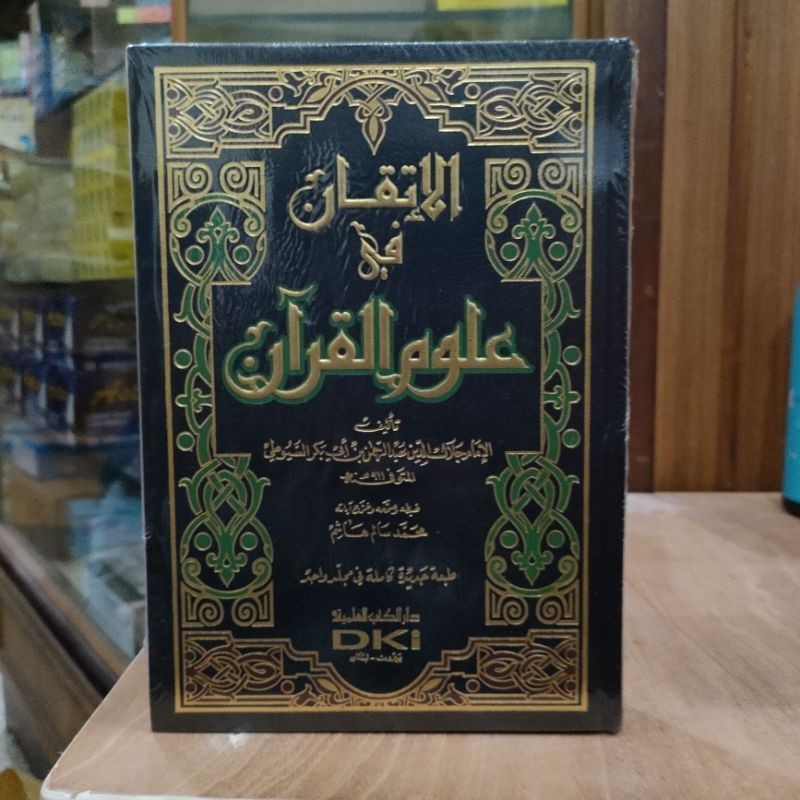 الإتقان
في
علوم القرآن
تأليف
الإمام جلال الدين عبد الرحمن بن أبي بكر السيوطي
المتوفى ٩١١ هـ
ضبطه وصححه وخرج آياته
محمد سالم هاشم
طبعة جديدة كاملة في مجلد واحد
دار الكتب العلمية
DKi
بيروت - لبنان